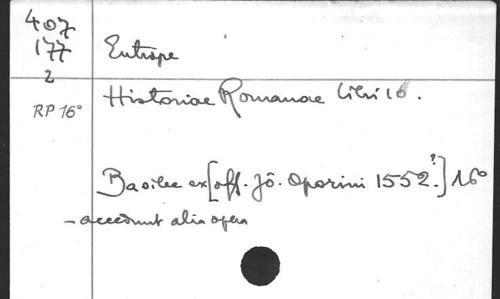 407
177
2
RP 16°
Eutrope
Historiae Romanae libri 16.
Basilee ex [off. Jô. Oporini 1552?.] 16°
- accedunt alia opera